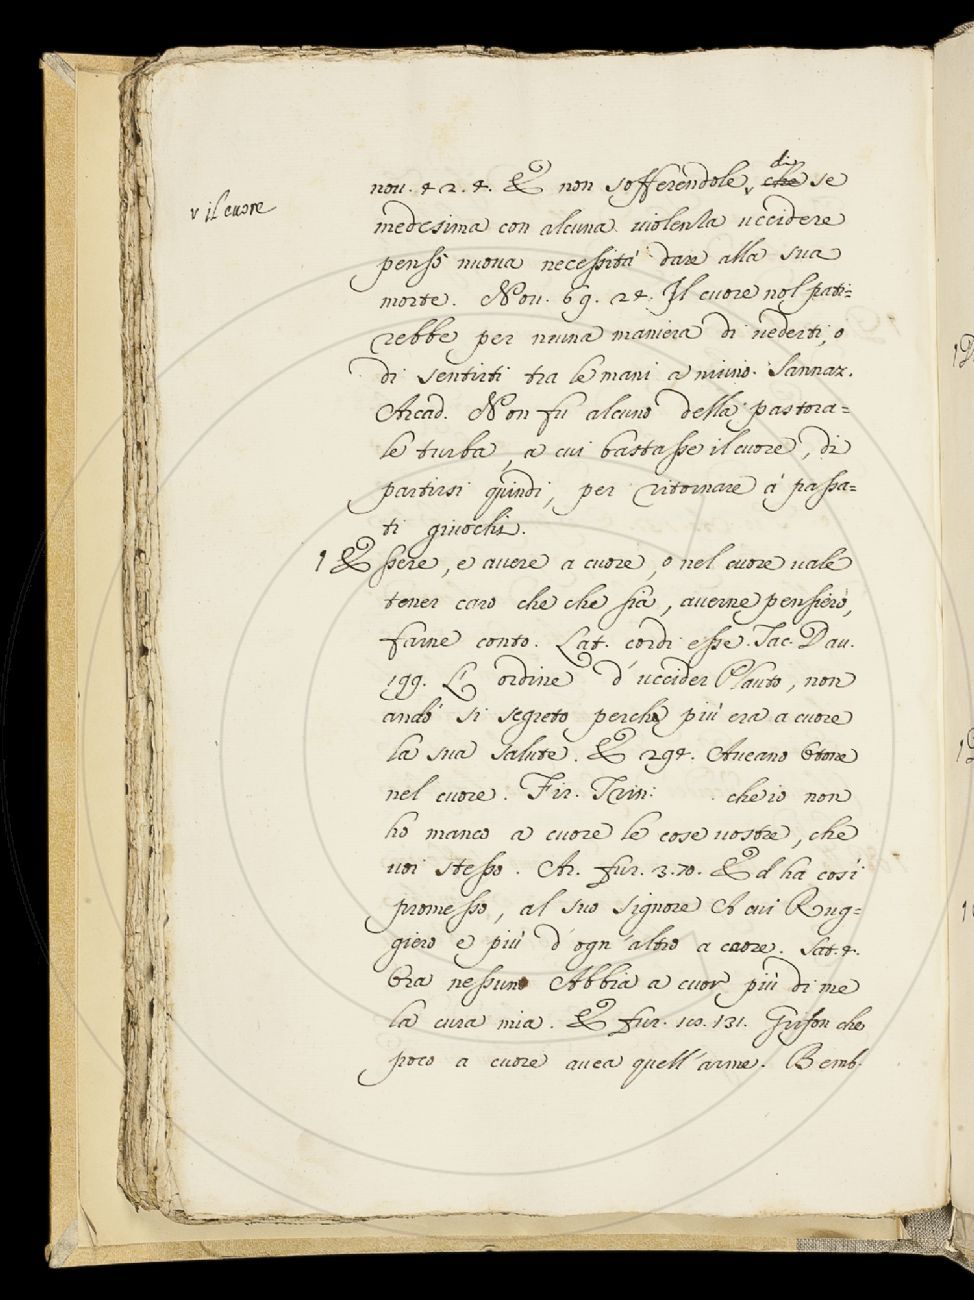 v il cuore
nou. 42. 4. E non sofferendole, di che se
medesima con alcuna violenza uccidere
pensò nuoua necessità dare alla sua
morte. Nou. 69. 24. Il cuore nol pati=
rebbe per niuna maniera di uederti, o
di sentirti tra le mani a niuno. Sannaz.
Arcad. Non fu alcuno della pastora=
le turba, a cui bastasse il cuore, di
partirsi quindi, per ritornare a' passa=
ti giuochi.
1 Essere, e auere a cuore, o nel cuore uale
tener caro che che sia, auerne pensiero,
farne conto. Lat. cordi esse. Tac. Dau.
199. L' ordine d'uccider Plauto, non
andò si segreto perchè più era a cuore
la sua salute. E 294. Aueano Otone
nel cuore. Fir. Trin: che io non
ho manco a cuore le cose uostre, che
uoi stesso. Ar. fur. 3. 70. E d ha così
promesso, al suo signore A cui Rug=
giero e più d'ogn'altro a cuore. Sat. 4.
Ora nessuno Abbia a cuor più di me
la cura mia. E fur. 18. 131. Grifon che
poco a cuore auea quell'arme. Bemb.
1
1
1